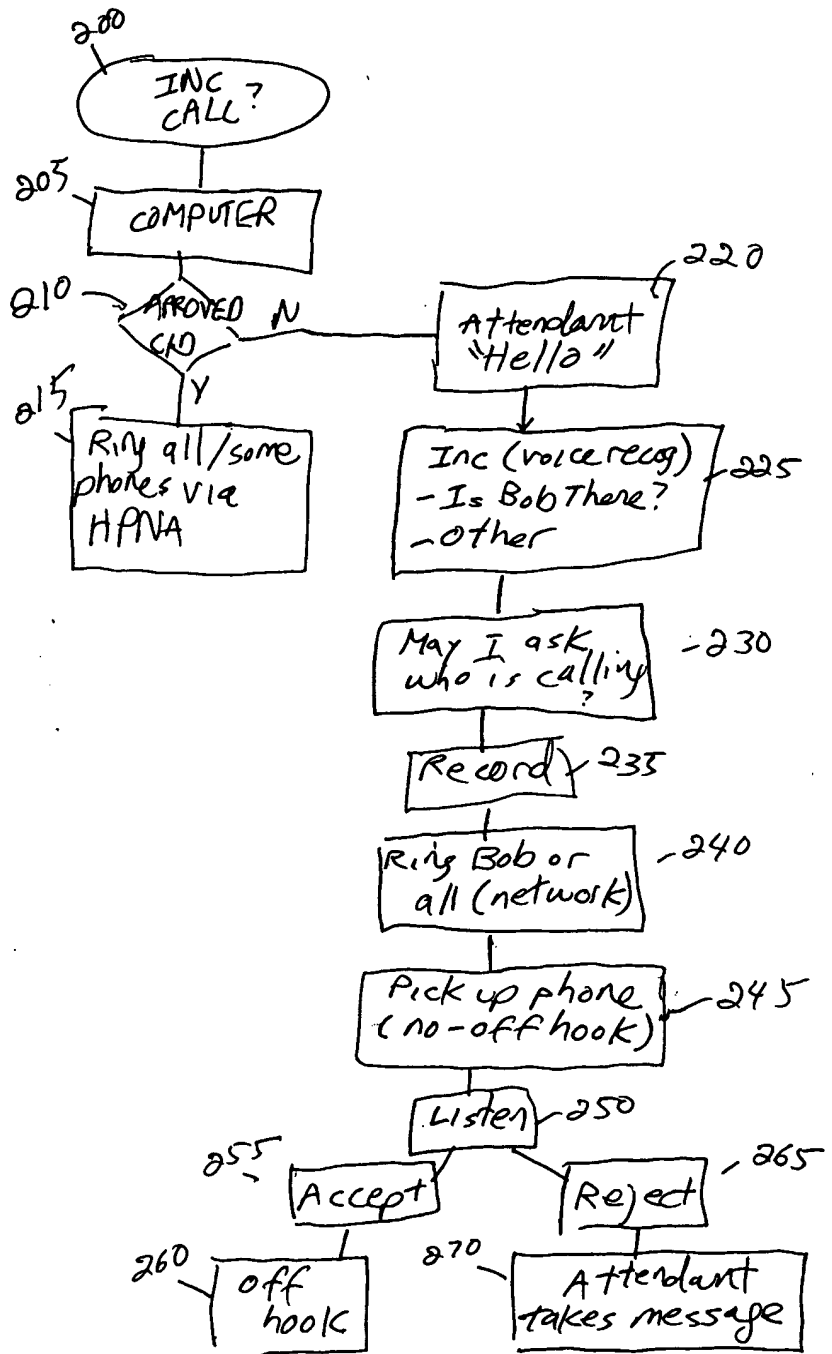 200
INC
CALL?
205
COMPUTER
210
APROVED
CID
N
Y
215
Ring all/some
phones via
HPNA
220
Attendant
"Hello"
Inc (voice recog)
- Is Bob There?
- Other
225
May I ask
who is calling
?
230
Record
235
Ring Bob or
all (network)
240
Pick up phone
(no-off hook)
245
Listen
250
255
Accept
265
Reject
260
off
hook
270
Attendant
takes message